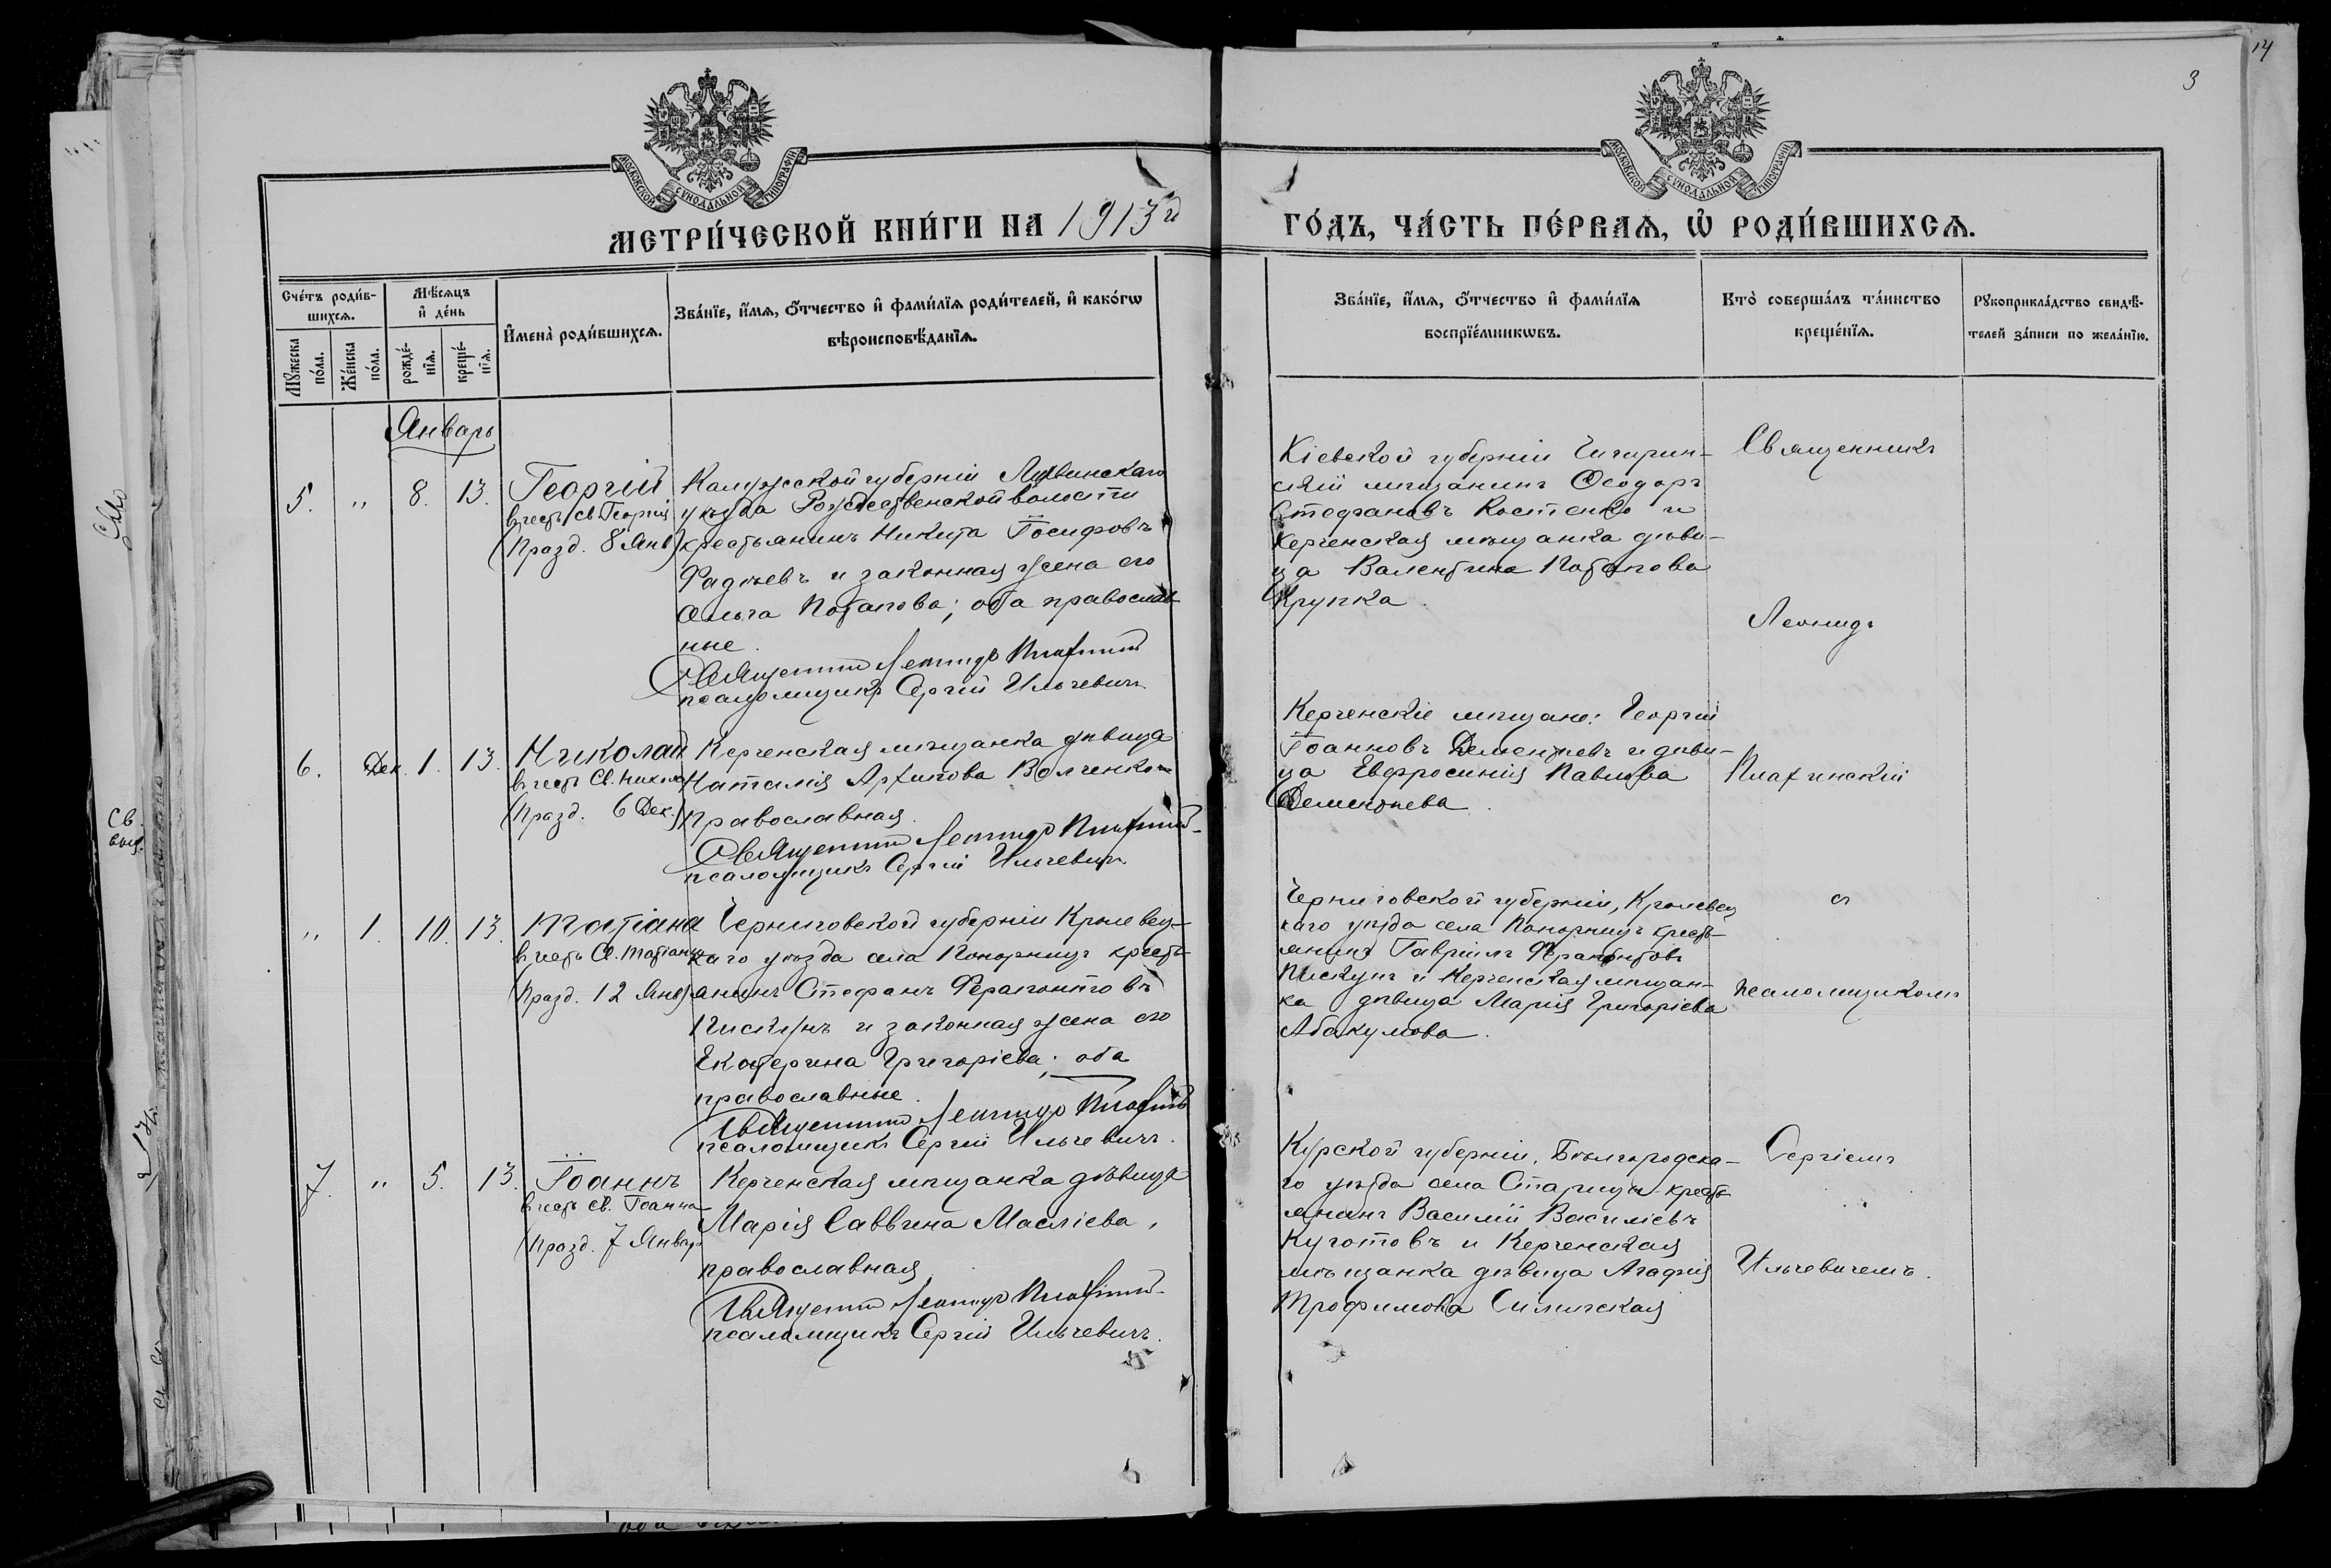 14
3
МОСКОВСКОЙ СѴНОДАЛЬНОЙ ТИПОГРАФІИ
МОСКОВСКОЙ СѴНОДАЛЬНОЙ ТИПОГРАФІИ
МЕТРИ́ЧЕСКОЙ КНИ́ГИ НА 1913 го
ГО́ДЪ, ЧА́СТЬ ПЕ́РВАѦ, Ѡ҆ РОДИ́ВШИХСѦ.
Сче́тъ роди́в-
шихсѧ.
Мѣ́сѧцъ
и҆ де́нь
И҆мена̀ роди́вшихсѧ.
Зва́нїе, и҆́мѧ, ѻ҆́тчество и҆ фами́лїѧ роди́телей, и҆ како́гѡ
вѣроисповѣ́данїѧ.
Мꙋ́жеска
по́ла.
Же́нска
по́ла.
рожде́-
нїѧ.
креще́-
нїѧ.
Зва́нїе, и҆́мѧ, ѻ҆́тчество и҆ фами́лїѧ
воспрїе́мникѡвъ.
Кто̀ соверша́лъ та́инство
креще́нїѧ.
Рꙋкоприкла́дство свидѣ́-
телей за́писи по жела́нїю.
Январь
5. " 8. 13.
Георгій
въ честь св. Георгія
(Празд. 8 Янв.)
Калужской губерніи Лихвинскаго
уѣзда Рождественской волости
крестьянинъ Никита Іосифовъ
Фадѣевъ и законная жена его
Ольга Потапова; оба православ-
ные.
Священникъ Леонидъ Плахинскій
псаломщикъ Сергій Ильчевичъ
Кіевской губерніи Чигирин-
скій мѣщанинъ Ѳеодоръ
Стефановъ Костенко и
Керченская мѣщанка дѣви-
ца Валентина Потапова
Крупка.
Священникъ
Леонидъ
6. Дек. 1. 13.
Николай
въ честь Св. Никол.
(Празд. 6 Дек.)
Керченская мѣщанка дѣвица
Наталія Архипова Волченко
православная.
Священникъ Леонидъ Плахинскій
псаломщикъ Сергій Ильчевичъ
Керченскіе мѣщане: Георгій
Іоанновъ Дементьевъ и дѣви-
ца Евфросинія Павлова
Дементьева.
Плахинскій
" 1. 10. 13.
Татіана
въ честь Св. Татіаны
(Празд. 12 Янв.)
Черниговской губерніи Кролевец-
каго уѣзда села Понорницъ кресть-
янинъ Стефанъ Ферапонтовъ
Пискунъ и законная жена его
Екатерина Григоріева; оба
православные.
Священникъ Леонидъ Плахинскій
псаломщикъ Сергій Ильчевичъ.
Черниговской губерніи, Кролевец
каго уѣзда села Понорницъ кресть-
янинъ Гавріилъ Ферапонтовъ
Пискунъ и Керченская мѣщан-
ка дѣвица Марія Григоріева
Абакумова.
съ
псаломщикомъ
7. " 5. 13.
Іоаннъ
въ честь св. Іоанна
(Празд. 7 Январ
Керченская мѣщанка дѣвица
Марія Саввина Масліева,
православная
Священникъ Леонидъ Плахинскій
псаломщикъ Сергій Ильчевичъ.
Курской губерніи, Бѣлгородска-
го уѣзда села Старица кресть-
янинъ Василій Василіевъ
Куготовъ и Керченская
мѣщанка дѣвица Агафія
Трофимова
Сергіемъ
Ильчевичемъ.